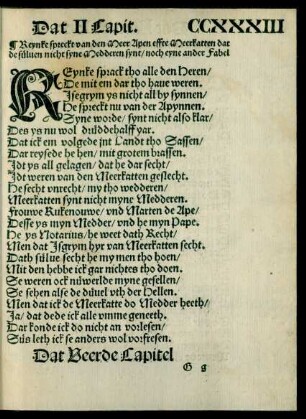 Dat II Capit. CCXXXIII
¶ Reynke spreckt van den Meer Apen effte Meerkatten dat
de süluen nicht syne Medderen synt / noch eyne ander Fabel
REynke sprack tho alle den Heren /
De mit em dar tho haue weren.
Isegrym ys nicht all by synnen /
He spreckt nu van der Apynnen.
Syne worde / synt nicht also klar /
Des ys nu wol düldehalff yar.
Dat ick em volgede jnt Landt tho Sassen /
Dar reysede he hen / mit grotem brassen.
Idt ys all gelagen / dat he dar secht /
Idt weren van den Meerkatten geslecht.
He secht vnrecht / my tho wedderen /
Meerkatten synt nicht myne Medderen.
Frouwe Rukenouwe / vnd Marten de Ape /
Desse ys myn Medder / vnd he myn Pape.
He ys Notarius / he weet dath Recht /
Men dat Isgrym hyr van Meerkatten secht.
Dath sülue secht he my men tho hoen /
Mit den hebbe ick gar nichtes tho doen.
Se weren ock nüwerlde myne gesellen /
Se sehen alse de düuel vth der Hellen.
Men dat ick de Meerkatte do Medder heeth /
Ja / dat dede ick alle vmme geneeth.
Dar konde ick do nicht an vorlesen /
Süs leth ick se anders wol vorfresen.
Dat Veerde Capitel
G g